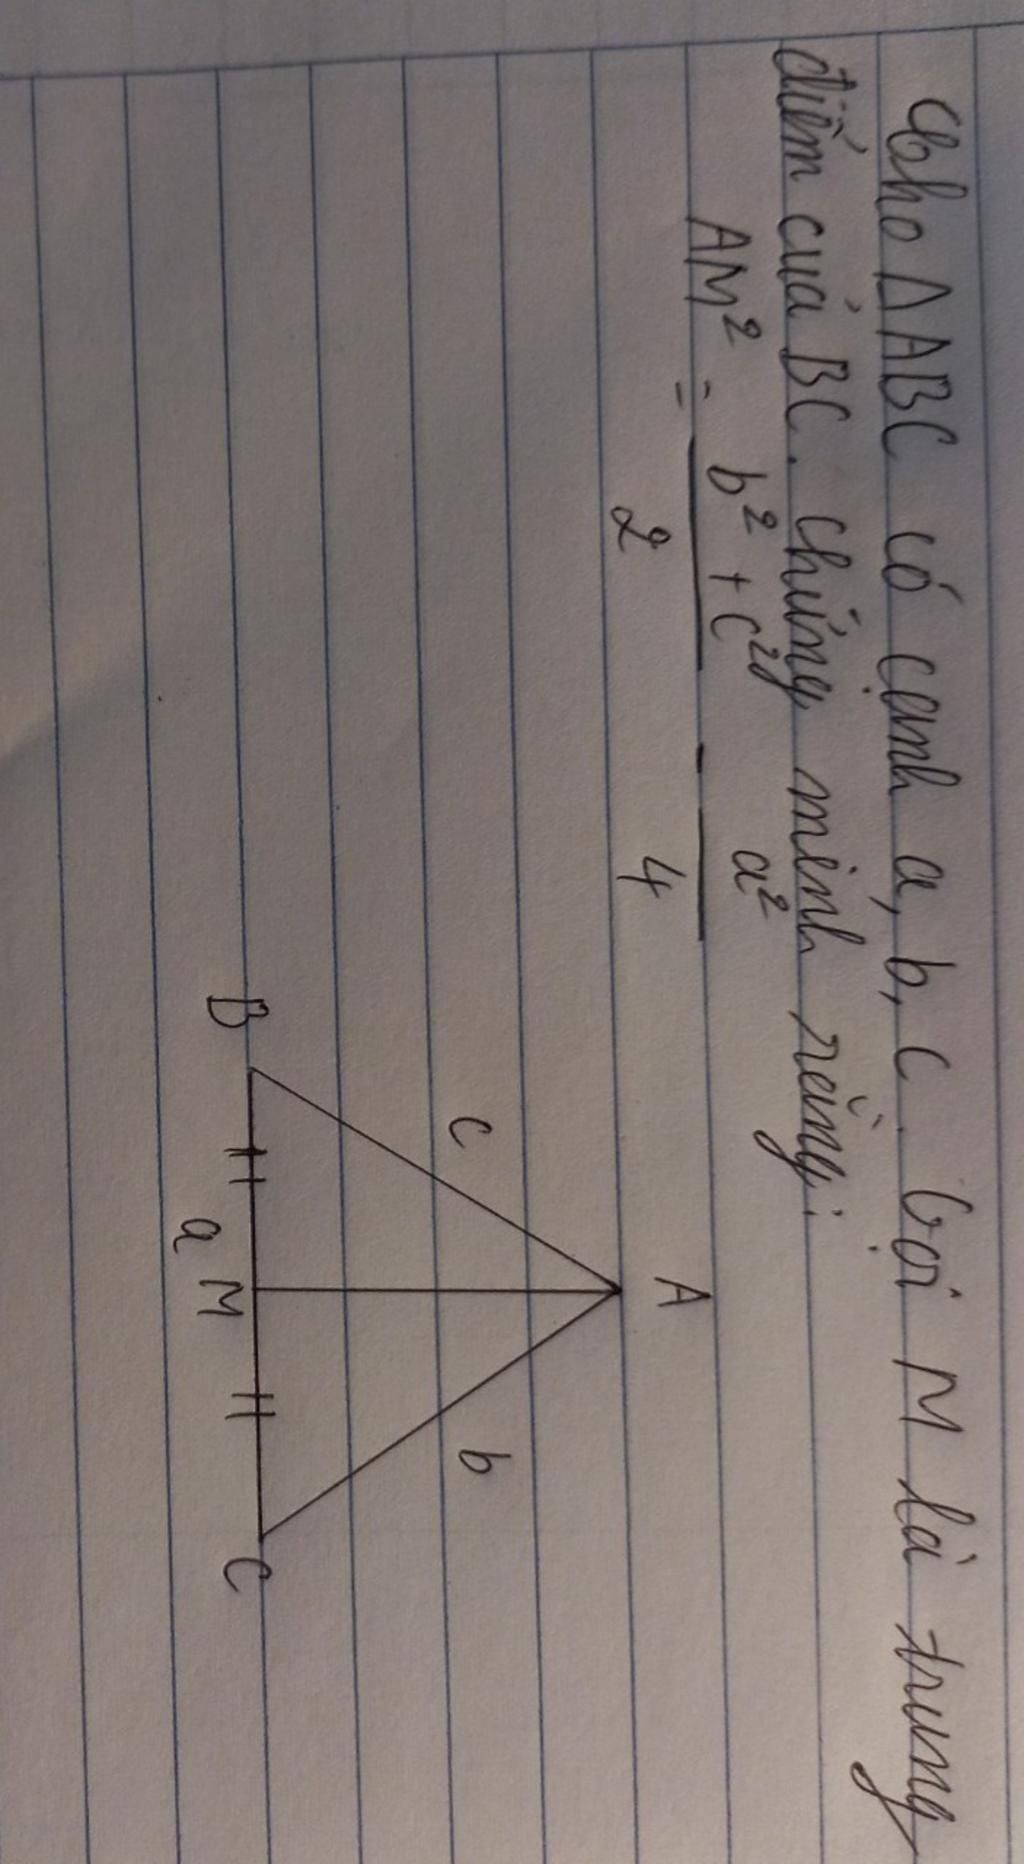 Cho ΔABC có cạnh a, b, c. Gọi M là trung
điểm của BC. Chứng minh rằng:
AM² = b² + c² / 2 - a² / 4
A
c b
B M C
a